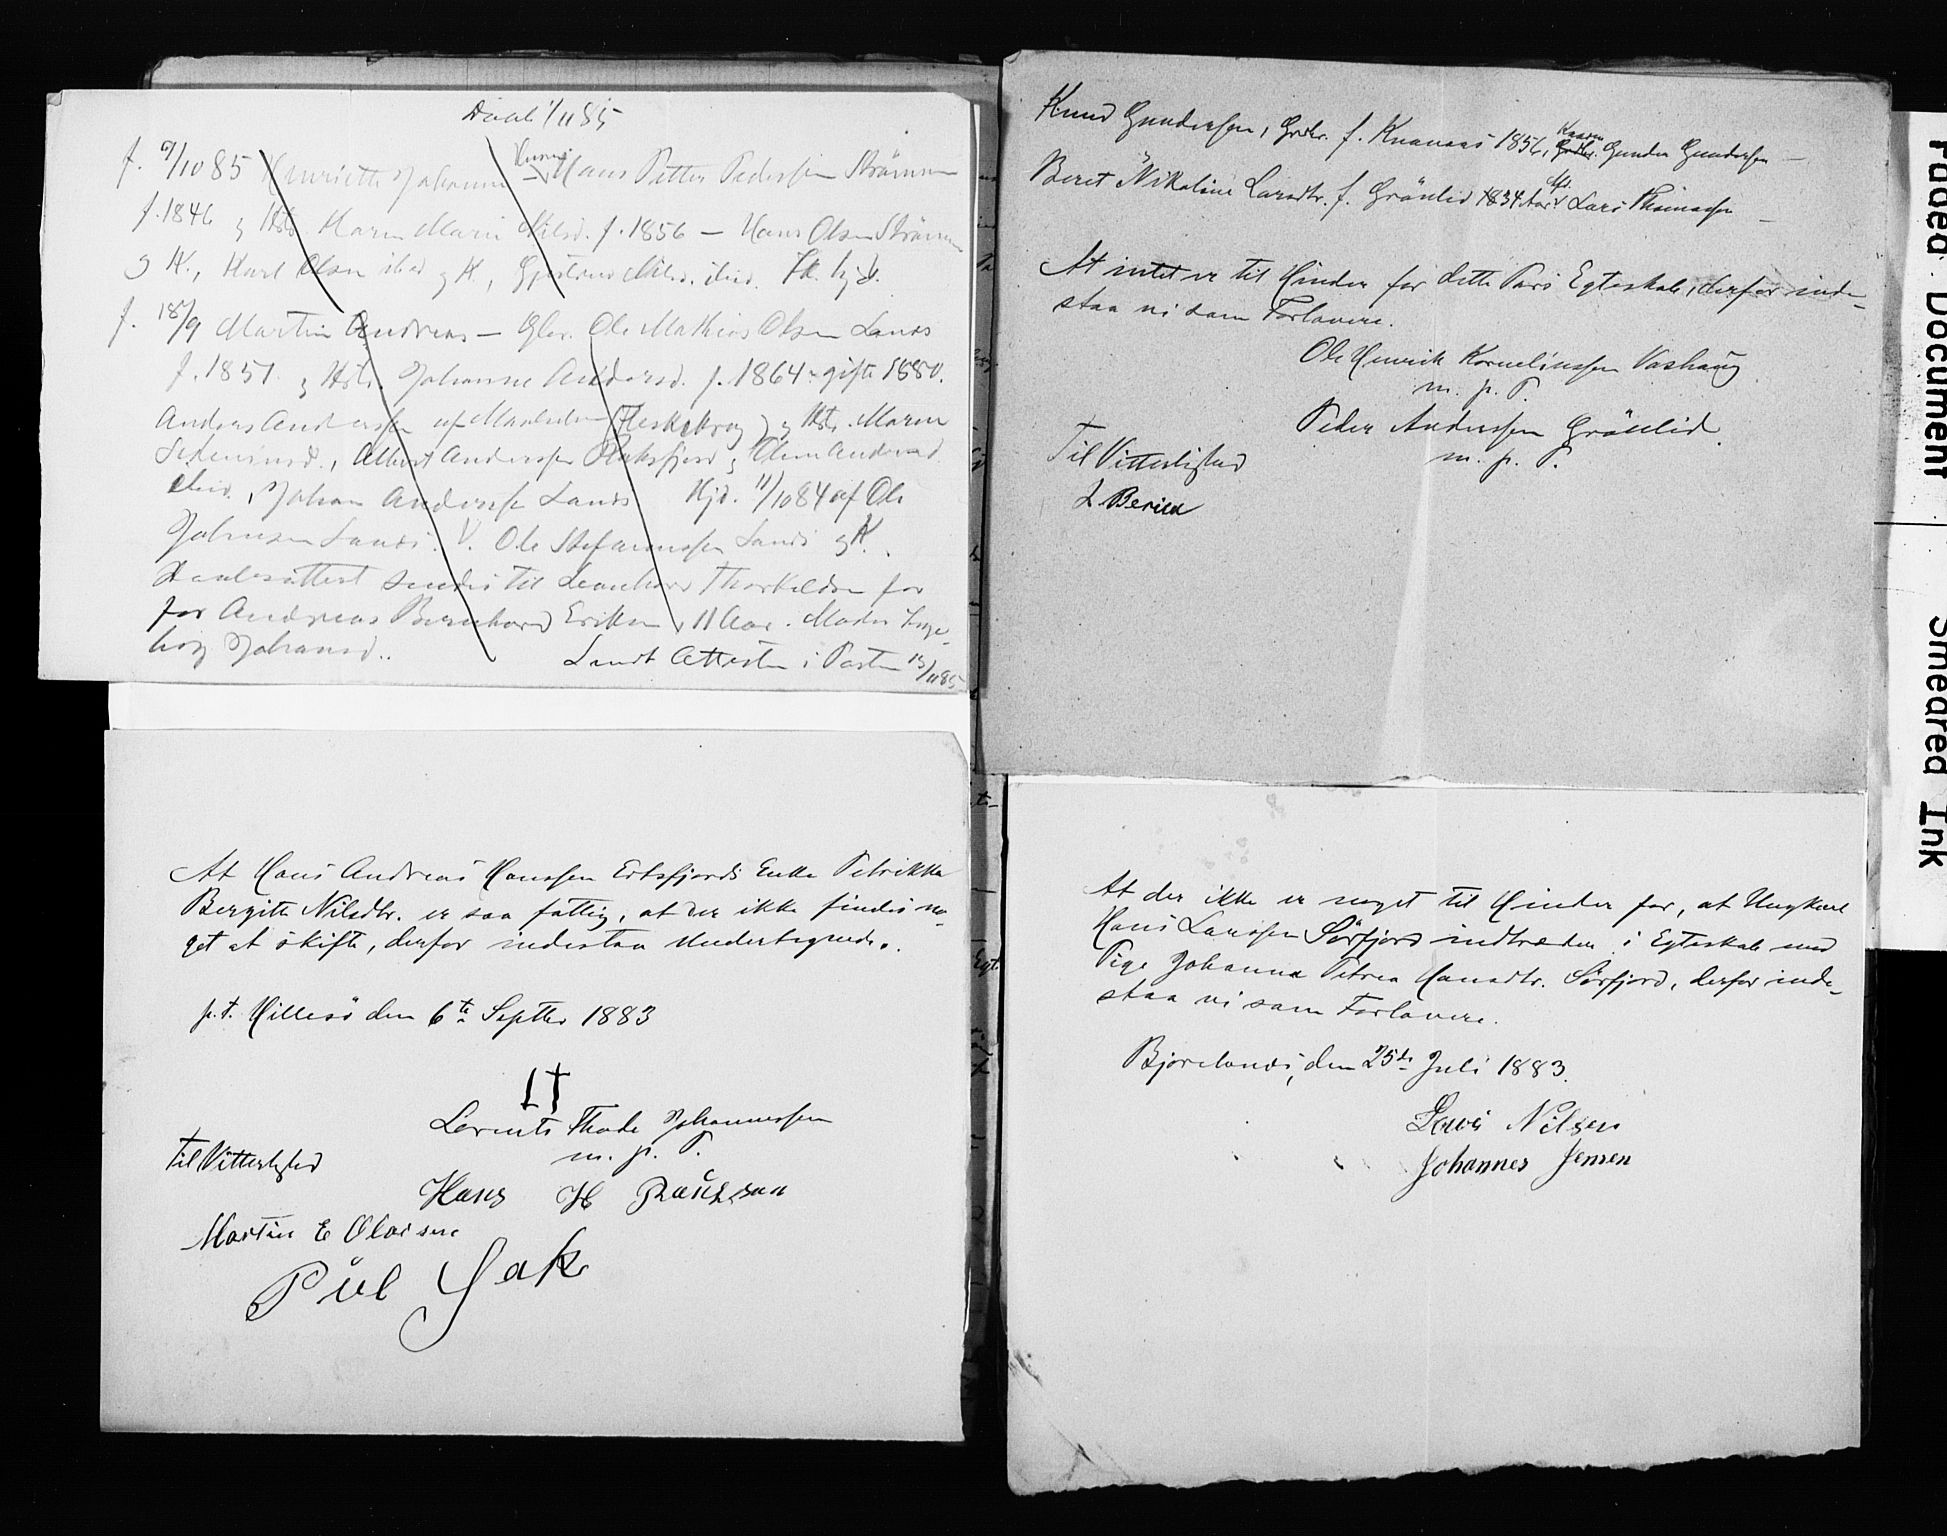 Daab 1/11 85
f. 9/10 85 Henriette Johanna – Huusm. Hans Petter Pedersen Strömmen
f. 1846 og Hst. Maren Marie Nilsd. f. 1856 – Hans Olsen Strömmen
og K., Karl Olsen ibid og K., Nilsd. ibid. Fk. hjd.
f. 18/9 Martin Andreas – Ole Mathias Olsen Lanes
f. 1851 og Hst. Johanne Andersd. f. 1864 – gifte 1880.
Anders Andersen af og Hst. Maren
Albert Andersen og Andersd
ibid., Johan Andersen Lanes Hjd. 11/10 84 af Ole
Johnsen Lanes. V. Ole Steffensen Lanes og K.
Daabsattest sendes til Leonhard Thorkildsen for
for Andreas Bernhard Eriksen, 11 Aar. Moder Inge-
borg Johansd..
Sendt Attesten i Posten 13/11 85
Knud Gundersen, Grdbr. f. Knaunas 1856, Kaaren Grdbr. Gunder Gundersen –
Beret Nikoline Larsdtr. f. Grönlid 1834 Aar. Afd. Lars Thomassen –
At intet er til Hinder for dette Pars Egteskab, derfor inde-
staa vi som Forlovere.
Ole Henrik Kornelinssen Vashaug
m. p. P.
Peder Anderssen Grönlid.
m. p. P.
Til Vitterlighed
L. Beriea
At Hans Andreas Hanssen Ertsfjords Enke Petrikka
Bergitte Nilsdtr. er saa fattig, at der ikke findes no-
get at skifte, derfor indestaa Undertegnede.
p. t. Hillesö den 6te Septbr 1883
LT
Lorents Thode Johannessen
m. p. P.
Til Vitterlighed
Hans H Paulssen
Martin E Olaisen
Pül Jak
At der ikke er noget til Hinder for, at Ungkarl
Hans Larssen Sörfjord indtræder i Egteskab med
Pige Johanna Petrea Hansdtr. Sörfjord, derfor inde-
staa vi som Forlovere.
Bjorelvnes, den 25de Juli 1883.
Lars Nilsen
Johannes Jensen
Faded Document
Smeared Ink